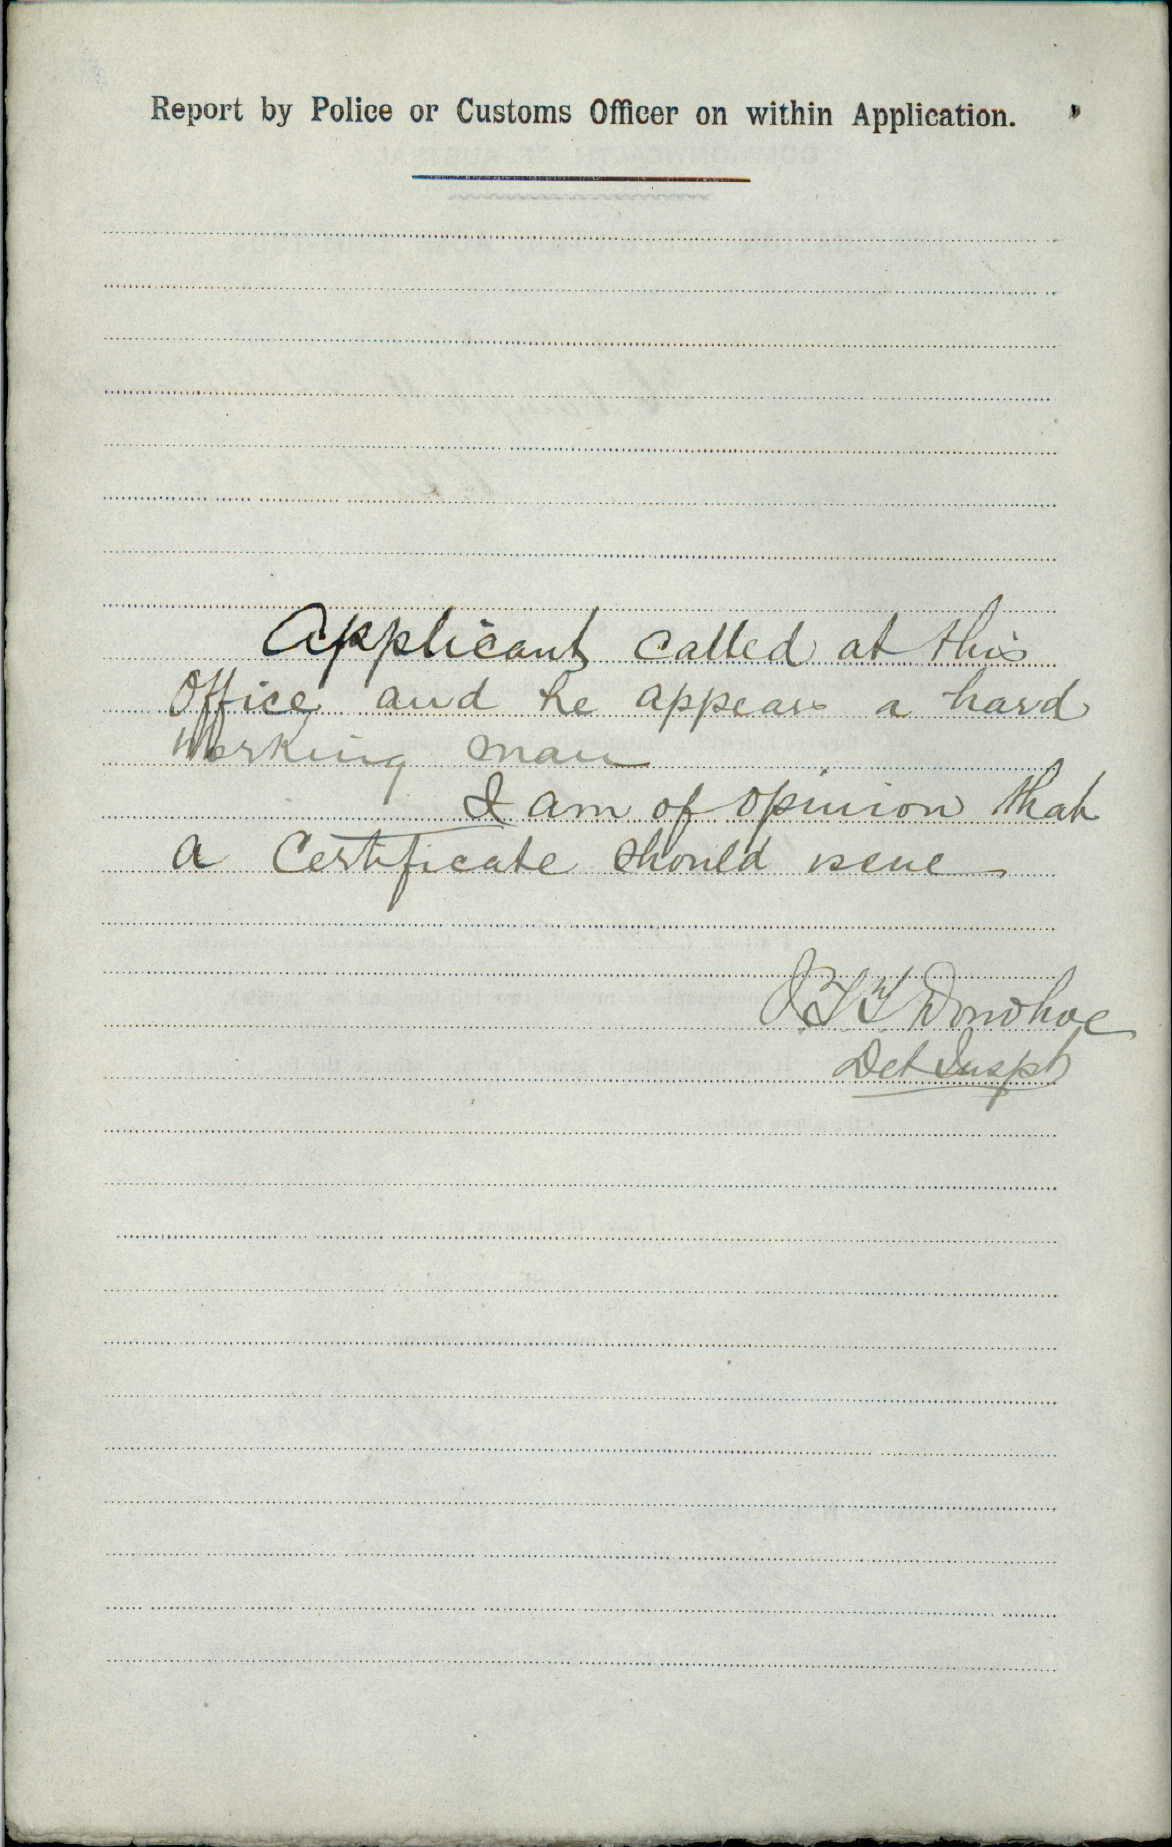 Report by Police or Customs Officer on within Application.
Applicant called at this
Office and he appears a hard
working man
I am of opinion that
a Certificate should issue
Donohoe
Det Inspt